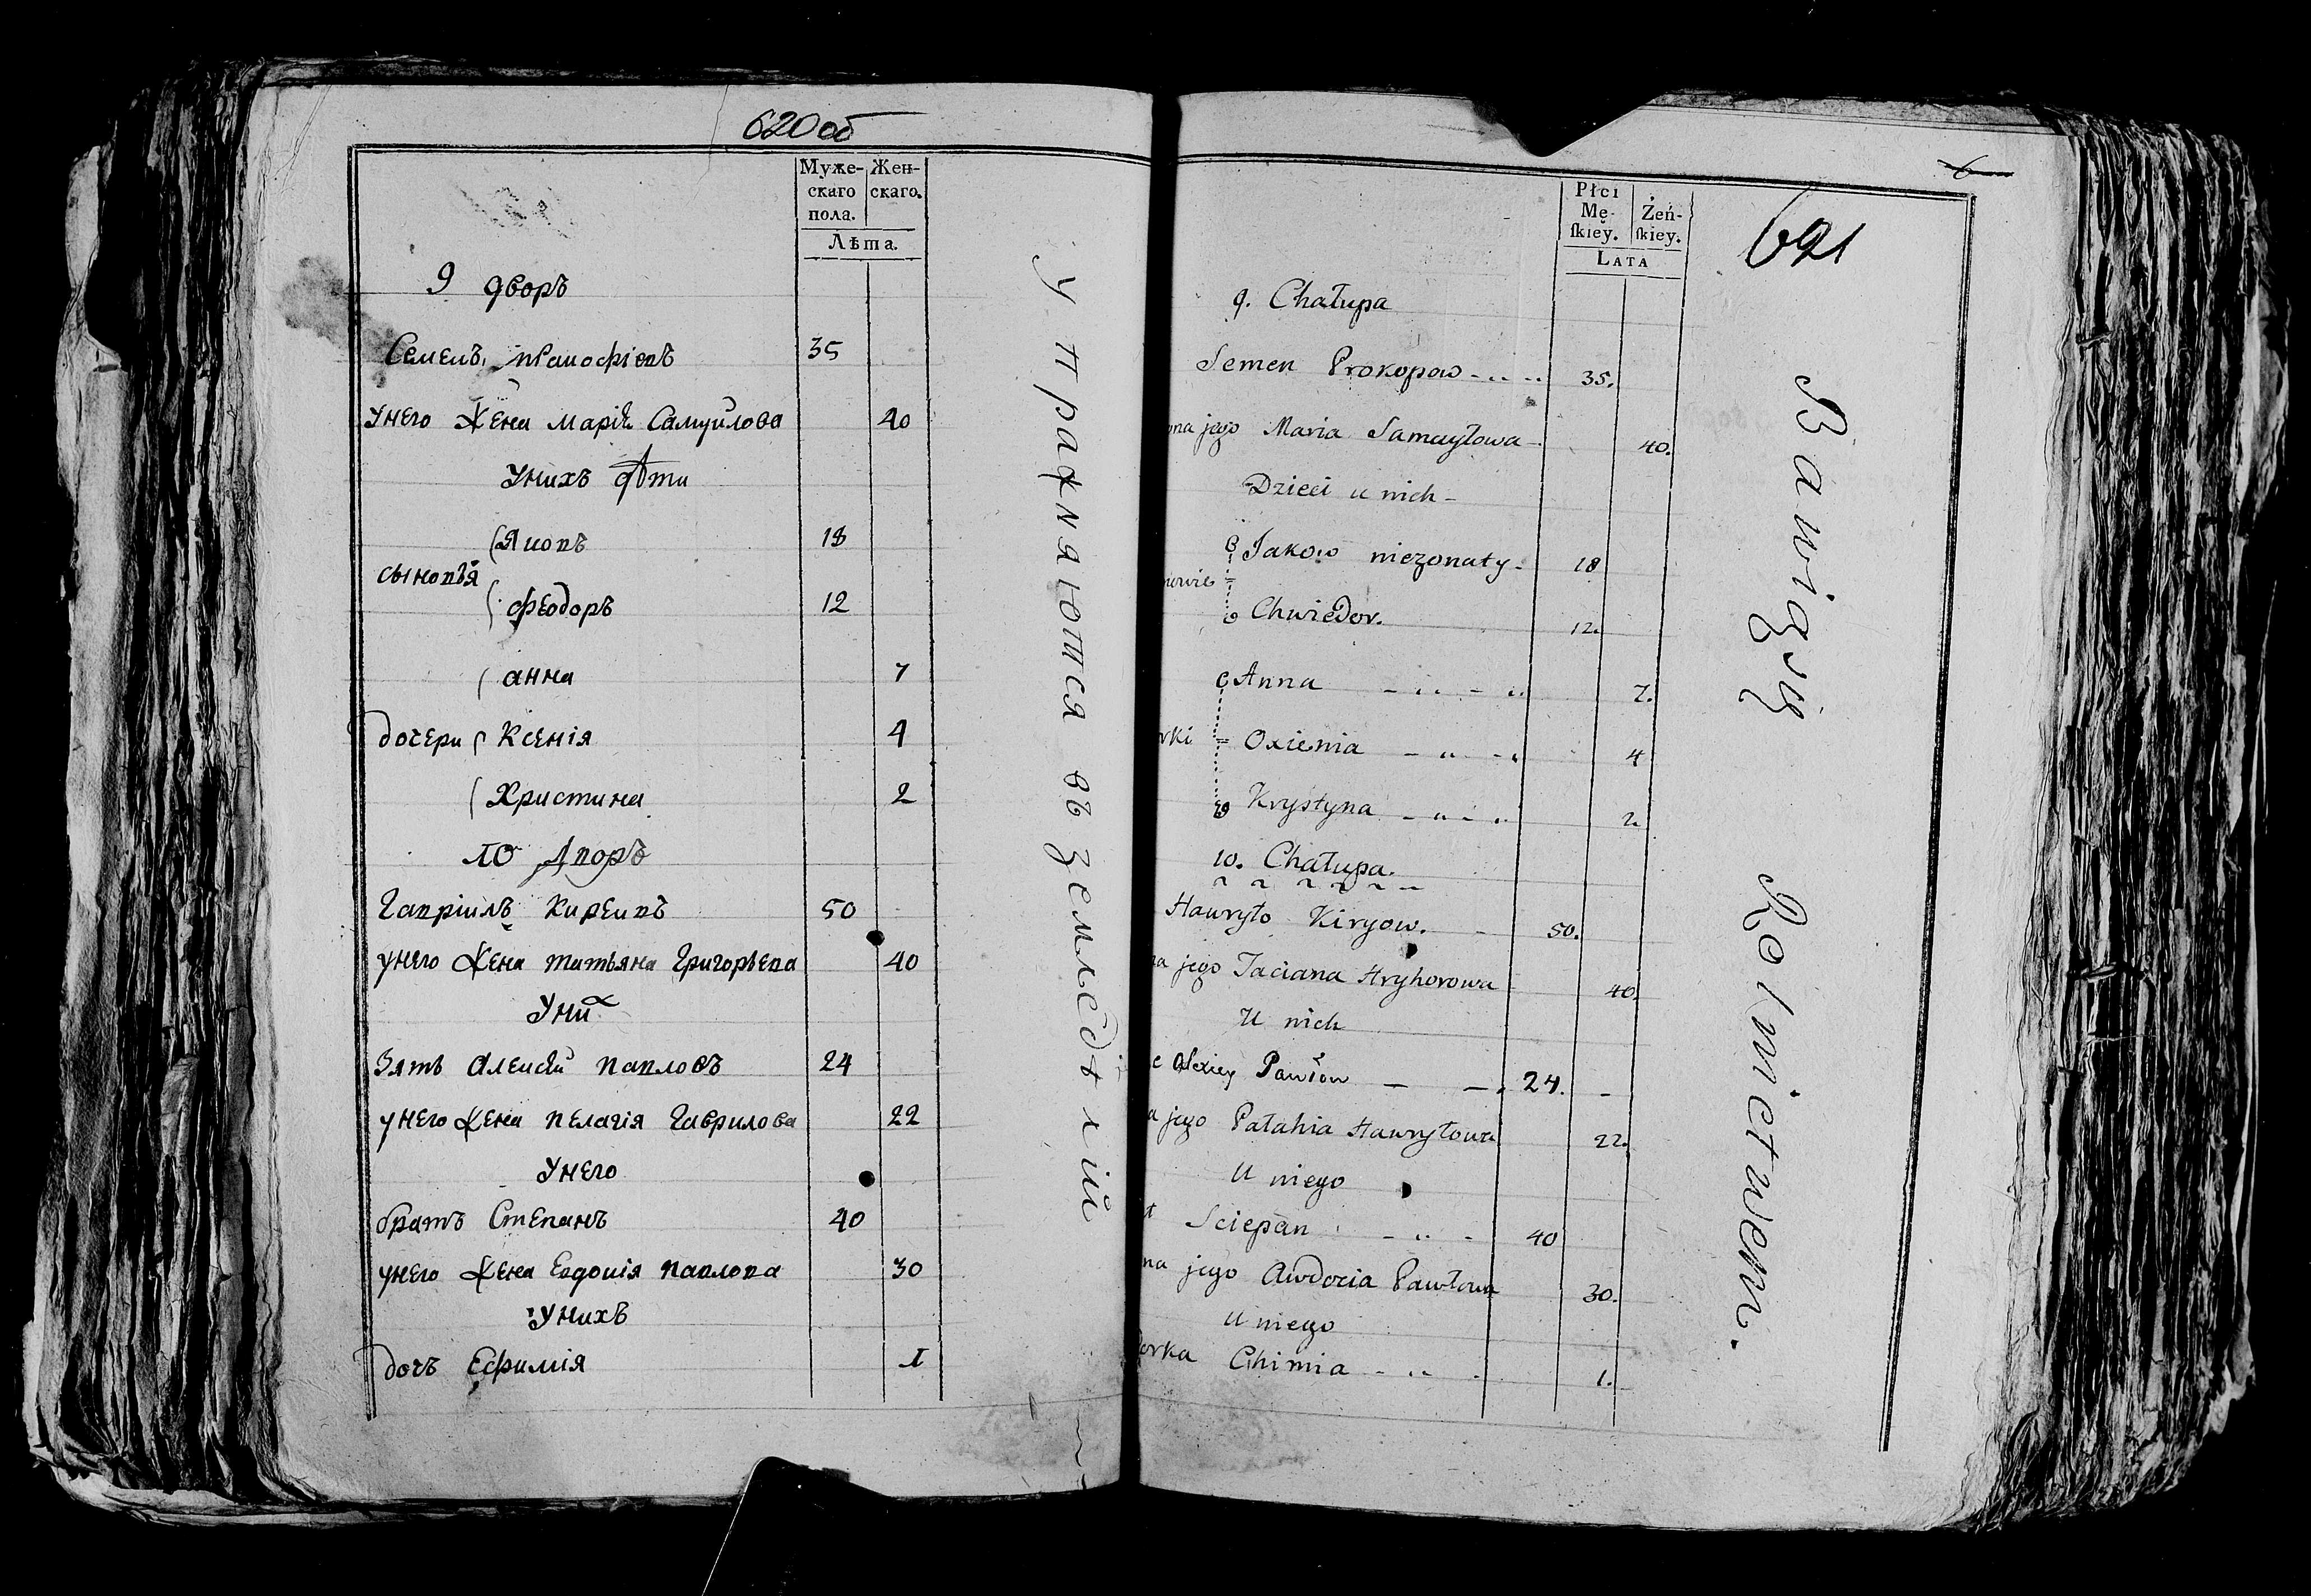 620 об
Муже-
скаго
пола.
Жен-
скаго.
Лѣта.
9 дворъ
Семенъ 35
унего жена Марія Самуйлова 40
Унихъ дѣти
Яковъ 18
сыновья
Феодоръ 12
анна 7
дочери Ксенія 4
Христина 2
10 Дворъ
Гавріилъ Киреивъ 50
унего жена татьяна Григорьева 40
Уних
Зять Алексѣй Павловъ 24
унего жена пелагія Гаврилова 22
Унего
братъ Степанъ 40
унего жена Евдокія Павлова 30
Унихъ
дочь Ефимія 1
Упражняются въ земледѣлхій
6
621
Płci
Mę-
ſkiey.
Żeń-
ſkiey.
LATA
9. Chałupa
Semen Prokopow 35.
ona jego Maria Samuyłowa 40.
Dzieci u nich
Jakow niezonaty 18
Chwiedor. 12.
Anna 7.
rki Oxienia 4
Krystyna 2
10. Chałupa.
Hawryło Kiryow. 50.
na jego Taciana Hryhorowa 40.
U nich
c Alexiey Pawłow 24.
a jego Pałahia Hawryłowa 22.
U niego
t Sciepan 40
na jego Awdocia Pawłowa 30.
U niego
orka Chimia 1.
Bawią się Rolnictwem.